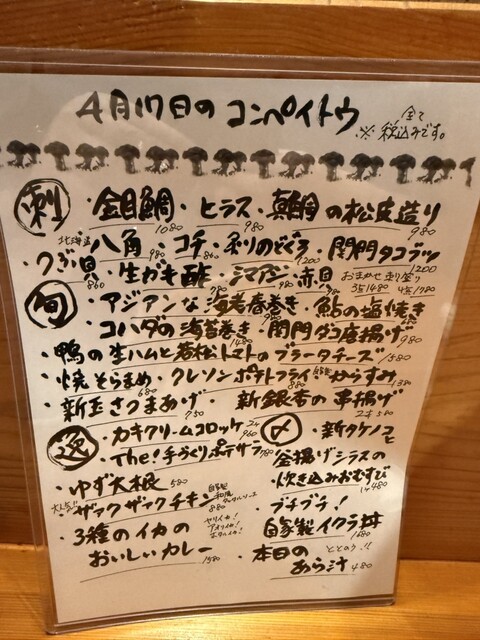 4月17日の コンペイトウ
※ 全て税込みです。
刺 ・金目鯛・ヒラス・真鯛の松皮造り
1080 980 980
北海道 八角・コチ・炙りのどぐろ・関門タコブツ
980 860 1200 1200
・つぶ貝・生ガキ酢・シマアジ・赤貝
860 おまかせ刺し盛り 3点1480 4点1780
旬 ・アジアンな海老春巻き・鮎の塩焼き
・コハダの海苔巻き・関門ダコ唐揚げ
980
・鴨の生ハムと若松トマトのブラータチーズ
1480 1580
・焼そらまめ・クレソンポテトフライ・自家製からすみ
680 880 1380
・新玉さつまあげ・新銀杏の串揚げ
750 2本580
・カキクリームコロッケ
2ケ 960
・The!手づくりポテサラ
780
・ゆず大根 580
・大人気!! ザァクザァクチキン
自家製 和風 タルタルソース 880
・3種のイカの
ヤリイカ! アオリイカ! ホタルイカ!
おいしいカレー
1580
〆 ・新タケノコと
釜揚げシラスの
炊き込みおむすび
1ケ480
・プチプチ!
自家製イクラ丼
1680
・本日の
ととのう!!
あら汁 480